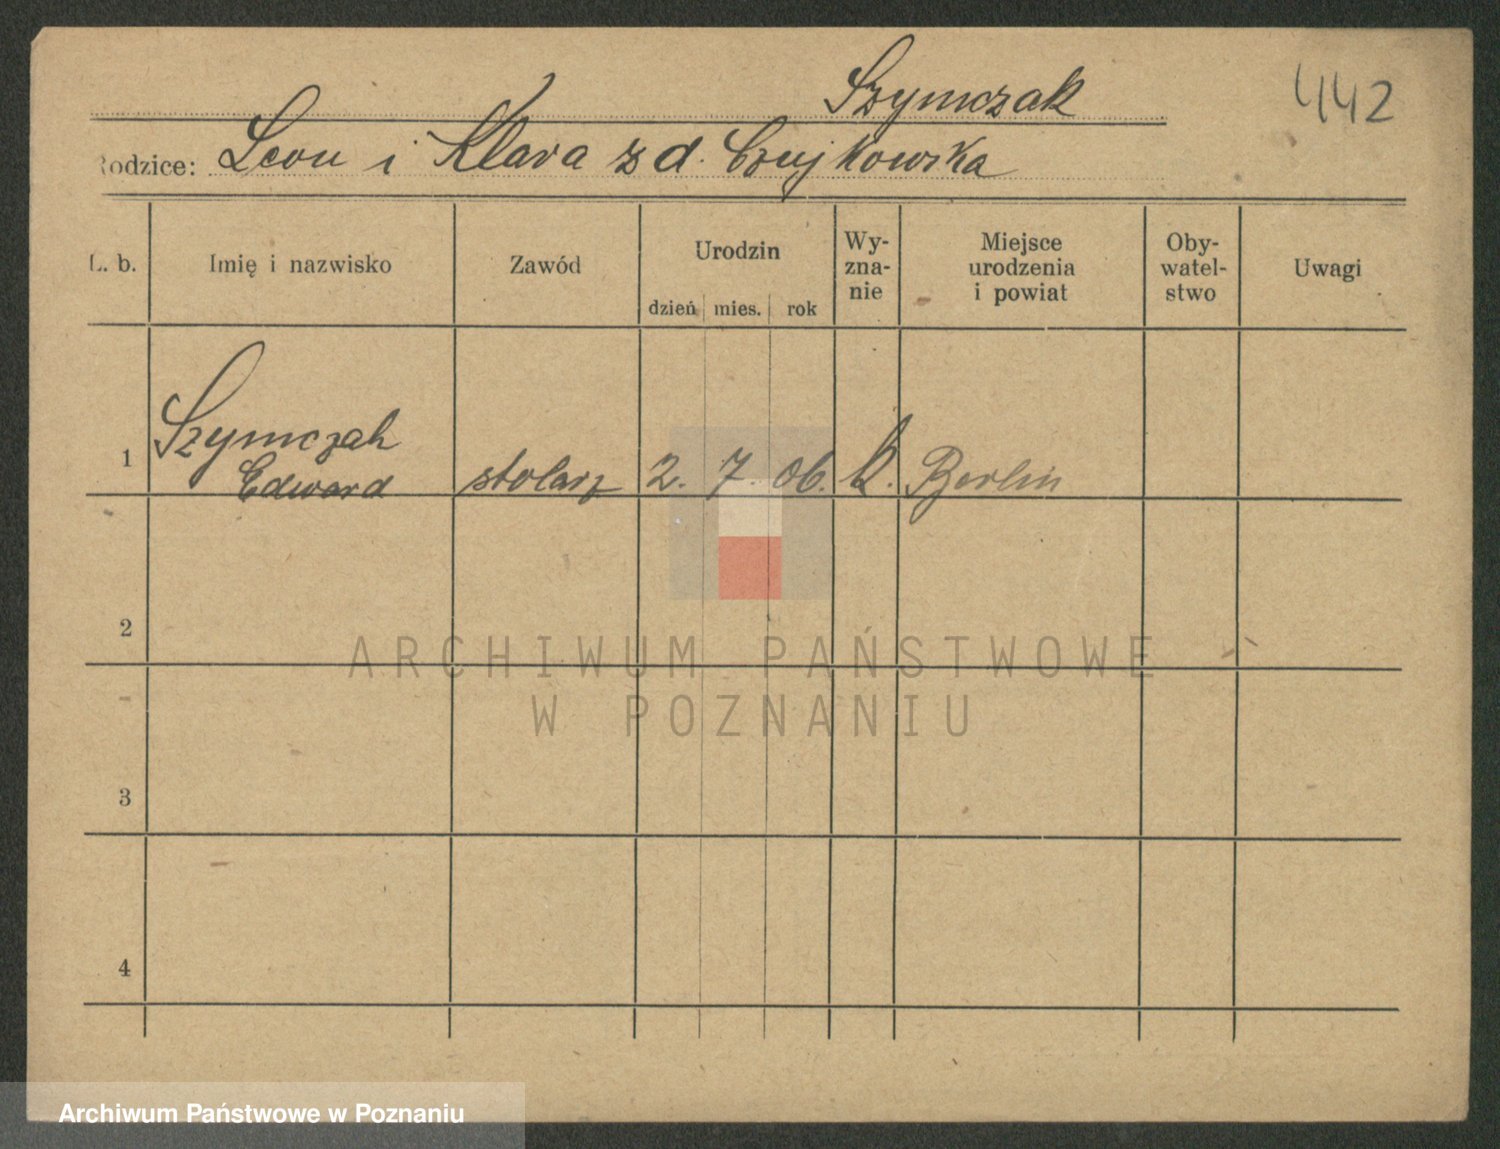 Szymczak
442
Rodzice: Leon i Klara z d. Czujkowska
L. b.
Imię i nazwisko
Zawód
Urodzin
dzień mies. rok
Wy-
zna-
nie
Miejsce
urodzenia
i powiat
Oby-
watel-
stwo
Uwagi
1 Szymczak
Edward stolarz 2. 7. 06. k. Berlin
2
3
4
ARCHIWUM PAŃSTWOWE
W POZNANIU
Archiwum Państwowe w Poznaniu